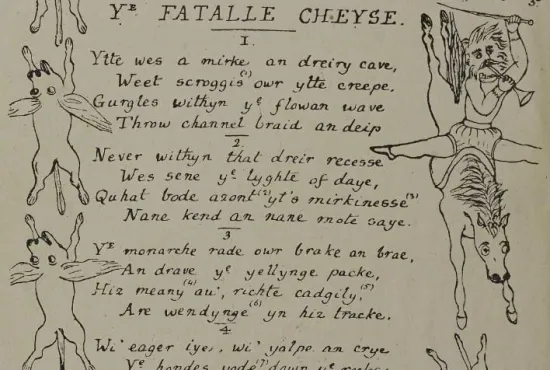 Yᴱ FATALLE CHEYSE.
1.
Ytte wes a mirke an dreiry cave,
Weet scroggis⁽¹⁾ owr ytte creepe,
Gurgles withyn yᵉ flowan wave
Throw channel braid an deip
2
Never withyn that dreir recesse
Wes sene yᵉ lyghte of daye,
Quhat bode azont⁽²⁾ yt's mirkinesse⁽³⁾
Nane kend an nane mote saye.
3
Yᴱ monarche rade owr brake an brae,
An drave yᵉ yellynge packe,
Hiz meany⁽⁴⁾ au', richte cadgily,⁽⁵⁾
Are wendynge⁽⁶⁾ yn hiz tracke.
4
Wi' eager iye, wi' yalpe an crye
Yᵉ hondes yode⁽⁷⁾ down yᵉ